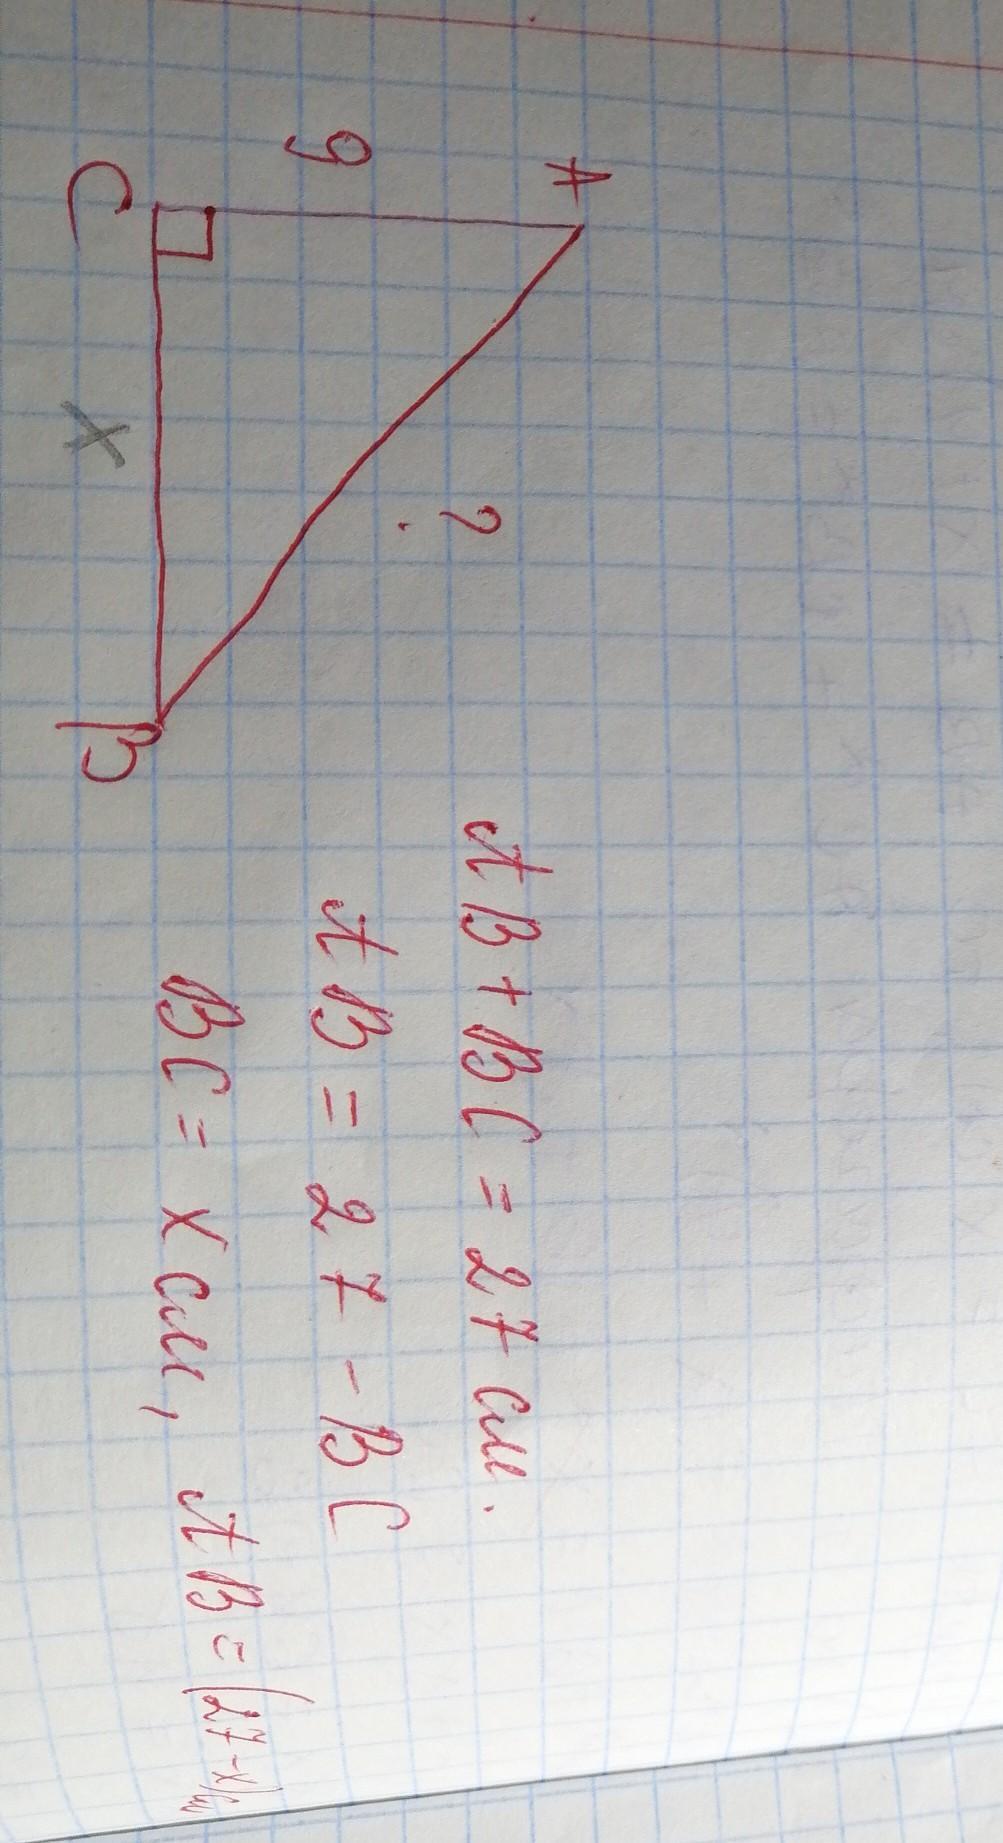 A
9
?
C
x
B
AB + BC = 27 см.
AB = 27 - BC
BC = x см, AB = (27-x) см